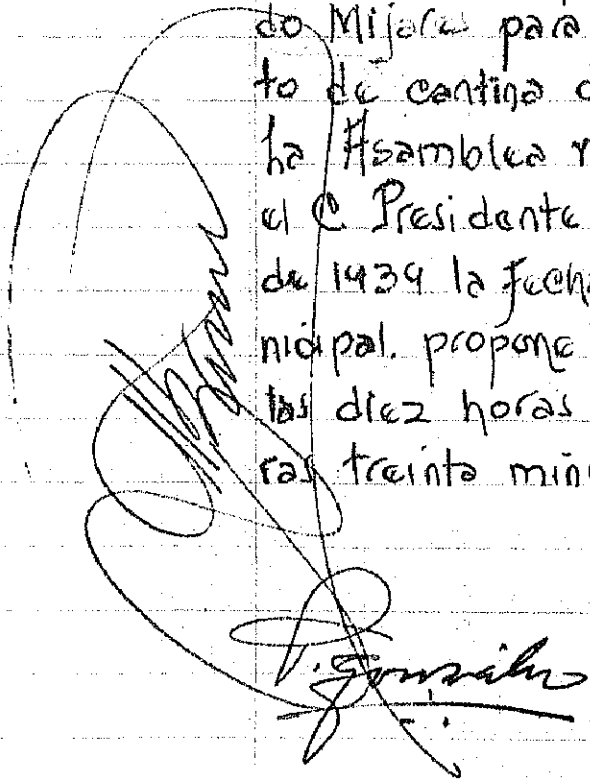 do Mijares para
to de cantina
ha Asamblea
el C. Presidente
de 1939 la fecha
nicipal. propone
las diez horas
ras treinta
P. González